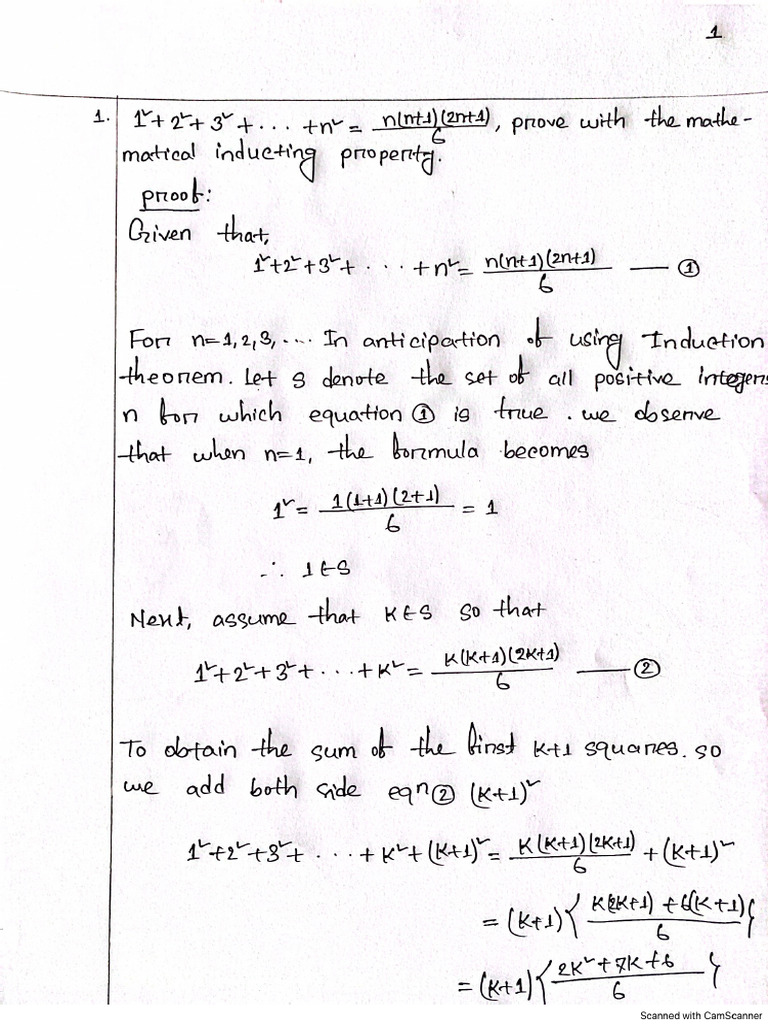 1
1. 1² + 2² + 3² + . . . + n² = n(n+1)(2n+1)/6, prove with the mathe-
matical inducting property.
proof:
Given that,
1²+2²+3²+ . . . + n² = n(n+1)(2n+1)/6 — ①
For n=1,2,3, .... In anticipation of using Induction
theorem. Let S denote the set of all positive integers
n for which equation ① is true. we observe
that when n=1, the formula becomes
1² = 1(1+1)(2+1)/6 = 1
∴ 1∈S
Next, assume that K∈S so that
1²+2²+3²+ . . . +K² = K(K+1)(2K+1)/6 — ②
To obtain the sum of the first K+1 squares. so
we add both side eqn② (K+1)²
1²+2²+3²+ . . . +K²+(K+1)² = K(K+1)(2K+1)/6 + (K+1)²
= (K+1) { K(2K+1) + 6(K+1)/6 }
= (K+1) { 2K²+7K+6/6 }
Scanned with CamScanner